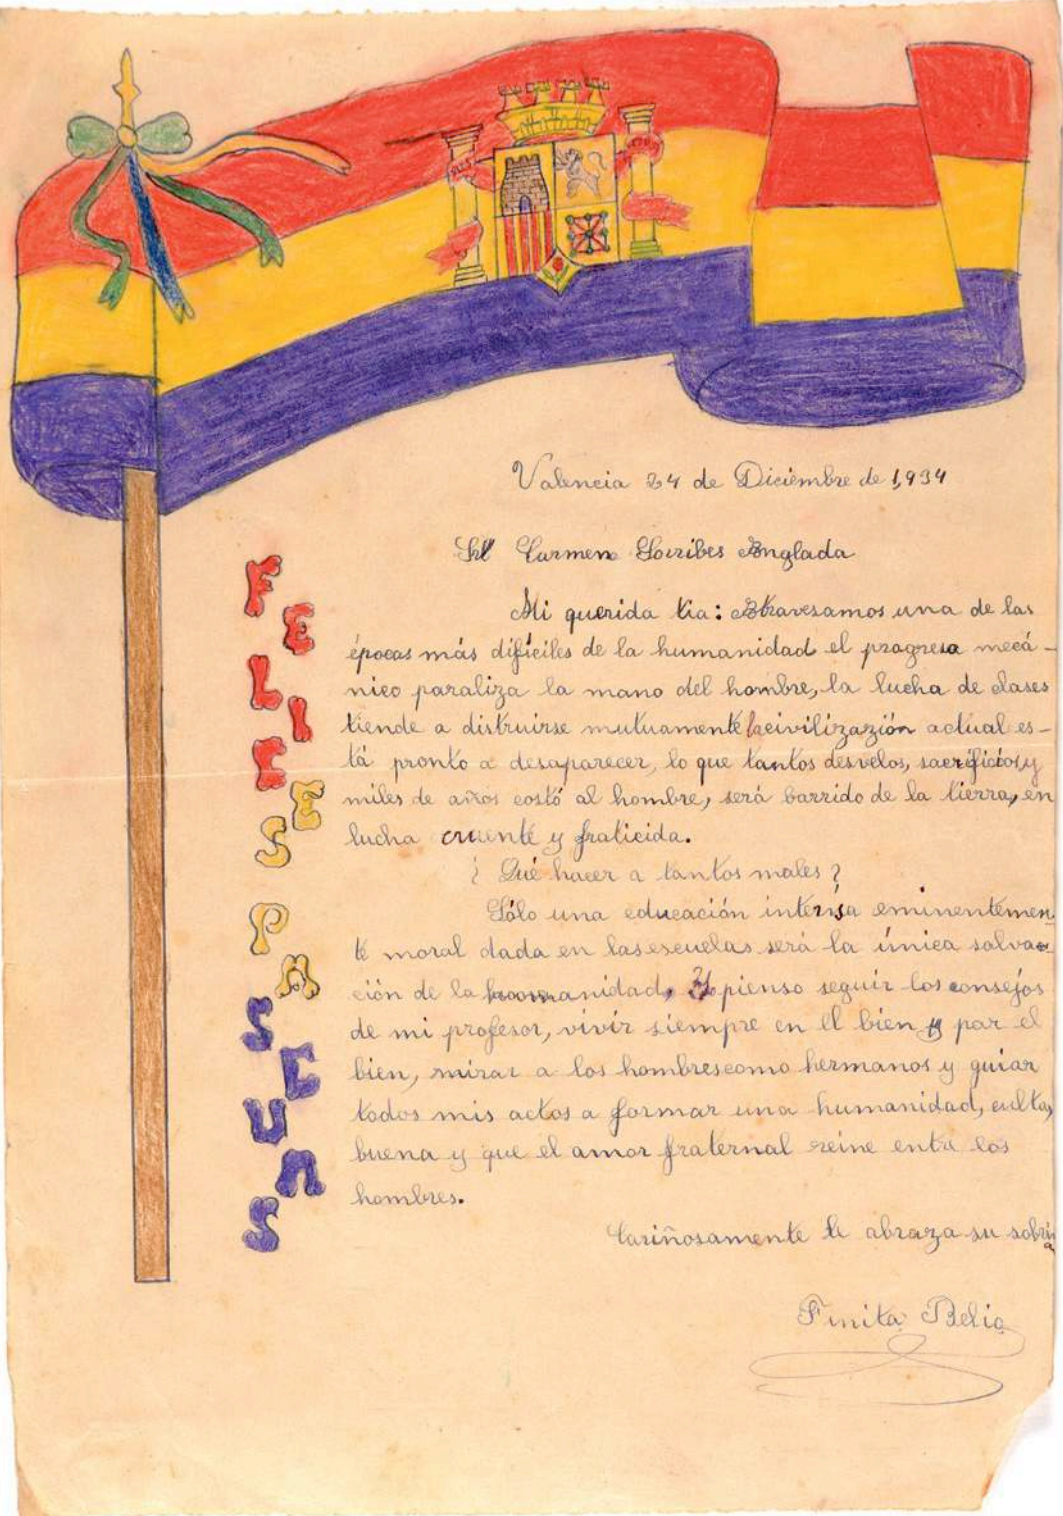 Valencia 24 de Diciembre de 1,934
Carmen Sorribes Anglada
Mi querida tia: Atravesamos una de las
épocas más difíciles de la humanidad el progreso mecá-
nico paraliza la mano del hombre, la lucha de clases
tiende a distruirse mutuamente la civilizazión actual es-
tá pronto a desaparecer, lo que tantos desvelos, sacrificios y
miles de años costó al hombre, será barrido de la tierra, en
lucha cruente y fraticida.
¿Qué hacer a tantos males?
Sólo una educación intensa eminentemen
te moral dada en las escuelas será la única salva-
ción de la humanidad, Yo pienso seguir los consejos
de mi profesor, vivir siempre en el bien y par el
bien, mirar a los hombres como hermanos y guiar
todos mis actos a formar una humanidad, culta,
buena y que el amor fraternal reine entre los
hombres.
Cariñosamente le abraza su sobrina
Finita Belio
FELICES
PASCUAS